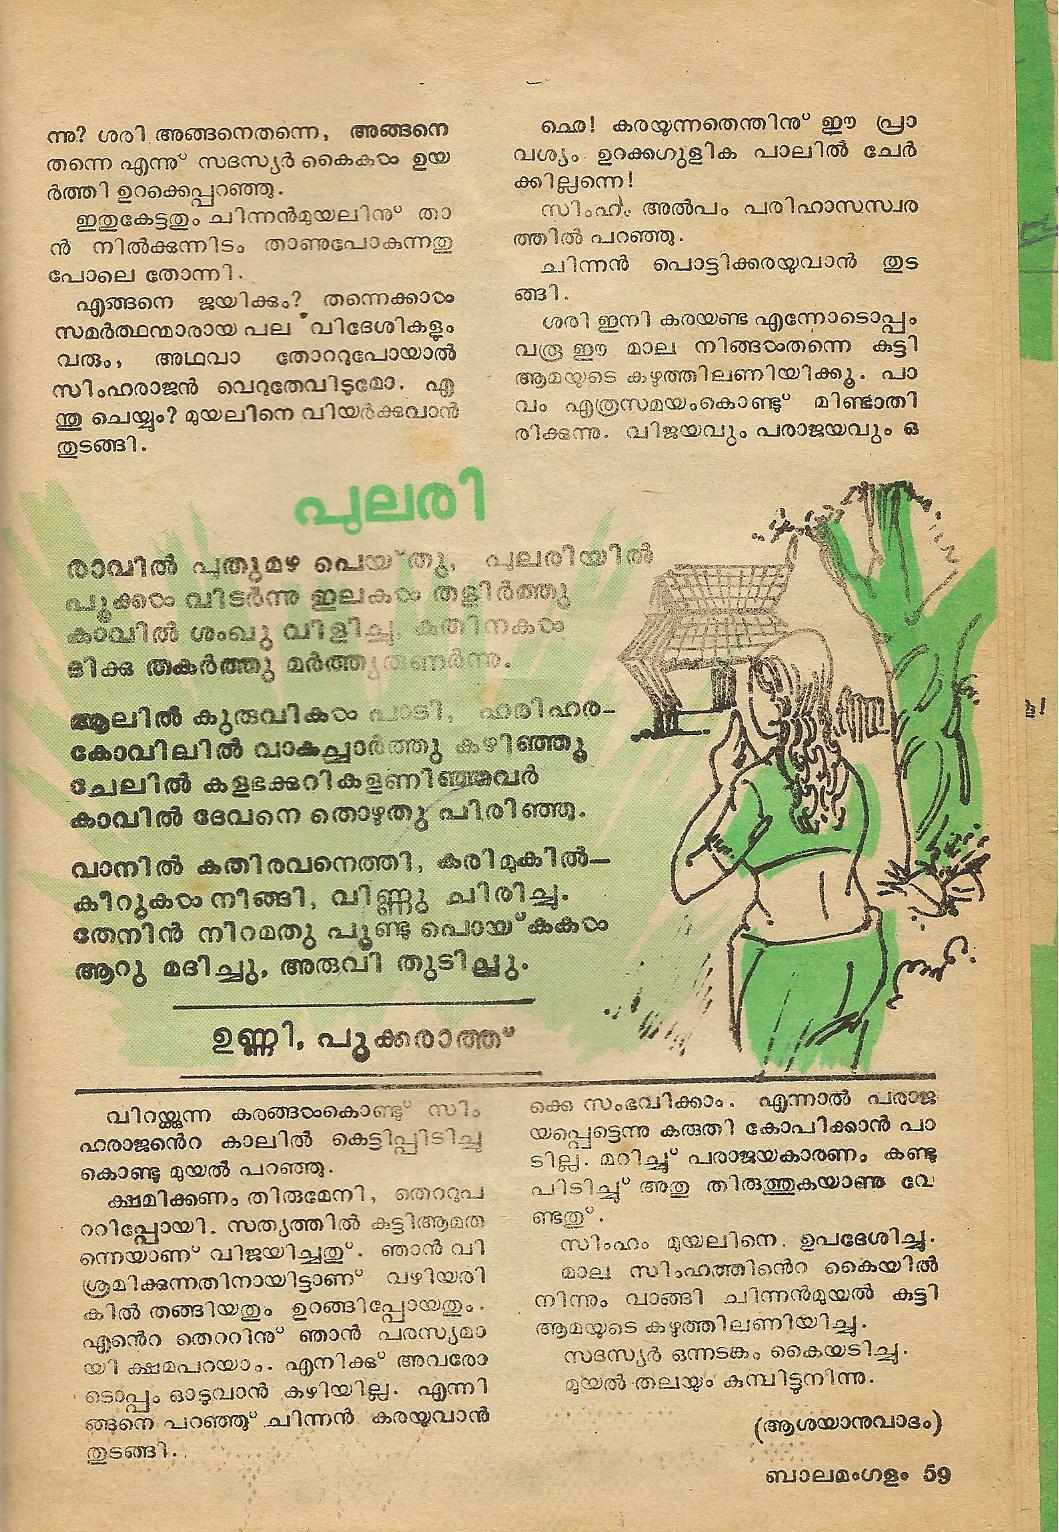 ന്നു? ശരി അങ്ങനെതന്നെ, അങ്ങനെ
തന്നെ എന്നു് സദസ്യർ കൈകൾ ഉയ
ർത്തി ഉറക്കെപ്പറഞ്ഞു.
ഇതുകേട്ടതും ചിന്നൻമുയലിനു് താ
ൻ നിൽക്കുന്നിടം താണുപോകുന്നതു
പോലെ തോന്നി.
എങ്ങനെ ജയിക്കും? തന്നെക്കാൾ
സമർത്ഥന്മാരായ പല വിദേശികളും
വരും, അഥവാ തോററുപോയാൽ
സിംഹരാജൻ വെറുതേവിടുമോ. എ
ന്തു ചെയ്യും? മുയലിനെ വിയർക്കുവാൻ
തുടങ്ങി.
ഛെ! കരയുന്നതെന്തിനു് ഈ പ്രാ
വശ്യം ഉറക്കഗുളിക പാലിൽ ചേർ
ക്കില്ലന്നെ!
സിംഹം അൽപം പരിഹാസസ്വര
ത്തിൽ പറഞ്ഞു.
ചിന്നൻ പൊട്ടിക്കരയുവാൻ തുട
ങ്ങി.
ശരി ഇനി കരയണ്ട എന്നോടൊപ്പം
വരൂ ഈ മാല നിങ്ങൾതന്നെ കുട്ടി
ആമയുടെ കഴുത്തിലണിയിക്കൂ. പാ
വം എത്രസമയംകൊണ്ടു് മിണ്ടാതി
രിക്കുന്നു. വിജയവും പരാജയവും ഒ
പുലരി
രാവിൽ പുതുമഴ പെയ്തു, പുലരിയിൽ
പൂക്കൾ വിടർന്നു ഇലകൾ തളിർത്തു
കാവിൽ ശംഖു വിളിച്ചു, കതിനകൾ
ദിക്കു തകർത്തു മർത്ത്യരുണർന്നു.
ആലിൽ കുരുവികൾ പാടി, ഹരിഹര–
കോവിലിൽ വാകച്ചാർത്തു കഴിഞ്ഞൂ
ചേലിൽ കളഭക്കുറികളണിഞ്ഞവർ
കാവിൽ ദേവനെ തൊഴുതു പിരിഞ്ഞൂ.
വാനിൽ കതിരവനെത്തി, കരിമുകിൽ–
കീറുകൾ നീങ്ങി, വിണ്ണു ചിരിച്ചു.
തേനിൻ നിറമതു പൂണ്ടു പൊയ്കകൾ
ആറു മദിച്ചൂ, അരുവി തുടിച്ചു.
ഉണ്ണി, പൂക്കരാത്ത്
വിറയ്ക്കുന്ന കരങ്ങൾകൊണ്ടു് സിം
ഹരാജൻെറ കാലിൽ കെട്ടിപ്പിടിച്ചു
കൊണ്ടു മുയൽ പറഞ്ഞു.
ക്ഷമിക്കണം തിരുമേനി, തെററുപ
ററിപ്പോയി. സത്യത്തിൽ കുട്ടിആമത
ന്നെയാണ് വിജയിച്ചതു്. ഞാൻ വി
ശ്രമിക്കുന്നതിനായിട്ടാണ് വഴിയരി
കിൽ തങ്ങിയതും ഉറങ്ങിപ്പോയതും.
എൻെറ തെററിനു് ഞാൻ പരസ്യമാ
യി ക്ഷമപറയാം. എനിക്കു് അവരോ
ടൊപ്പം ഓടുവാൻ കഴിയില്ല. എന്നി
ങ്ങനെ പറഞ്ഞു് ചിന്നൻ കരയുവാൻ
തുടങ്ങി.
ക്കെ സംഭവിക്കാം. എന്നാൽ പരാജ
യപ്പെട്ടെന്നു കരുതി കോപിക്കാൻ പാ
ടില്ല. മറിച്ചു് പരാജയകാരണം കണ്ടു
പിടിച്ചു് അതു തിരുത്തുകയാണു വേ
ണ്ടതു്.
സിംഹം മുയലിനെ ഉപദേശിച്ചു.
മാല സിംഹത്തിൻെറ കൈയിൽ
നിന്നും വാങ്ങി ചിന്നൻമുയൽ കുട്ടി
ആമയുടെ കഴുത്തിലണിയിച്ചു.
സദസ്യർ ഒന്നടങ്കം കൈയടിച്ചു.
മുയൽ തലയും കുമ്പിട്ടുനിന്നു.
(ആശയാനുവാദം)
ബാലമംഗളം 59